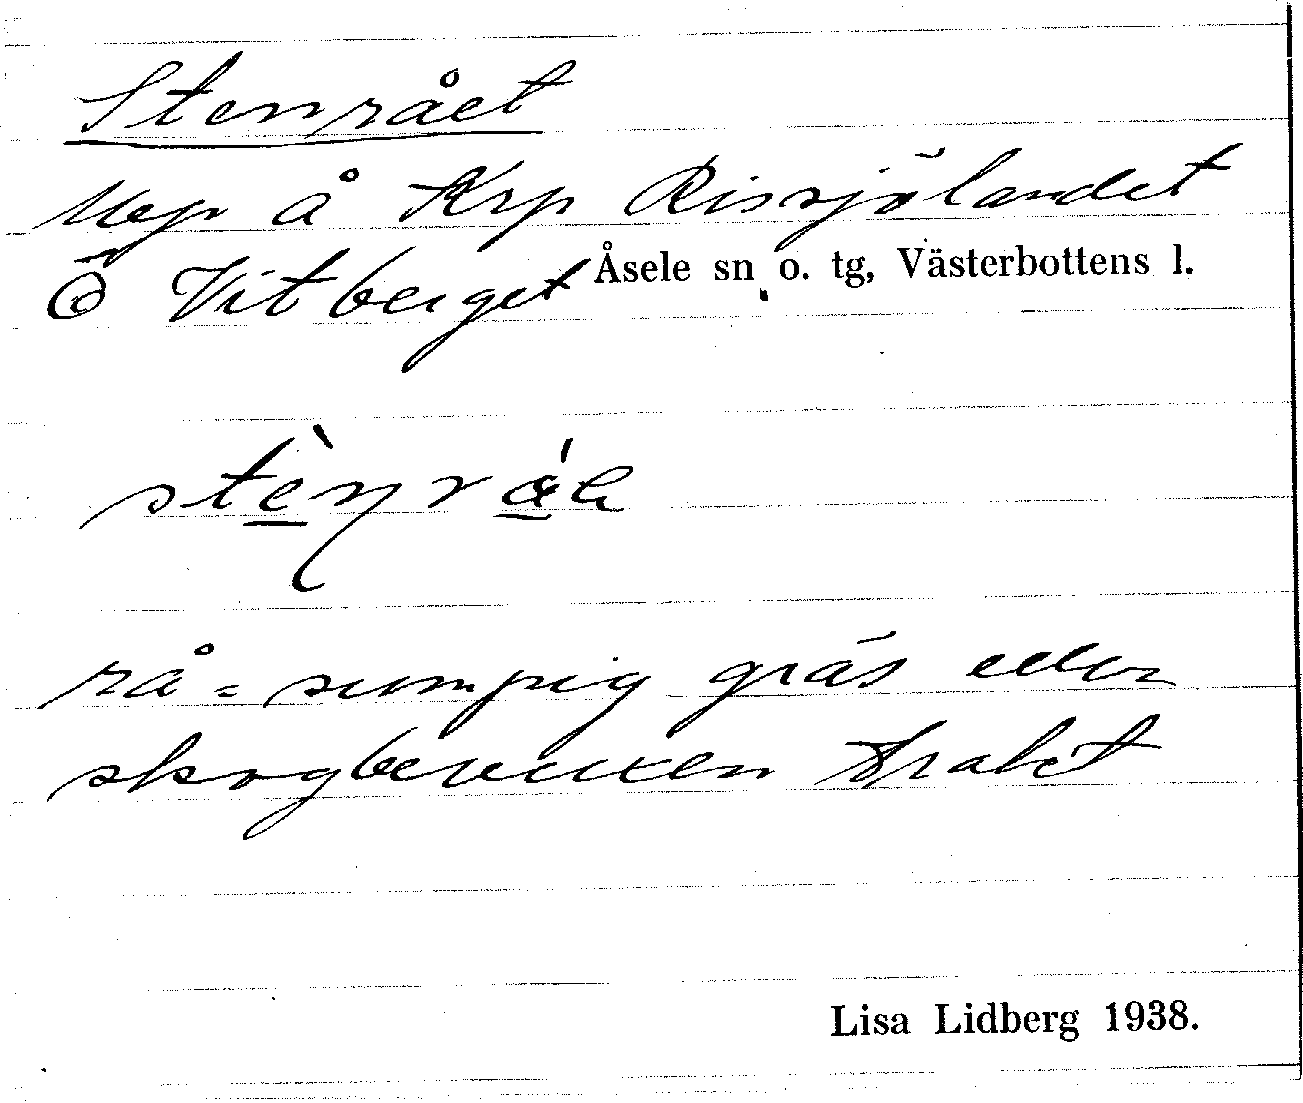 Stenrået
Uep å Krp Rissjölandet
Ö Vitberget Åsele sn o. tg, Västerbottens l.
rå = sumpig gräs eller
skogbevuxen trakt
Lisa Lidberg 1938.